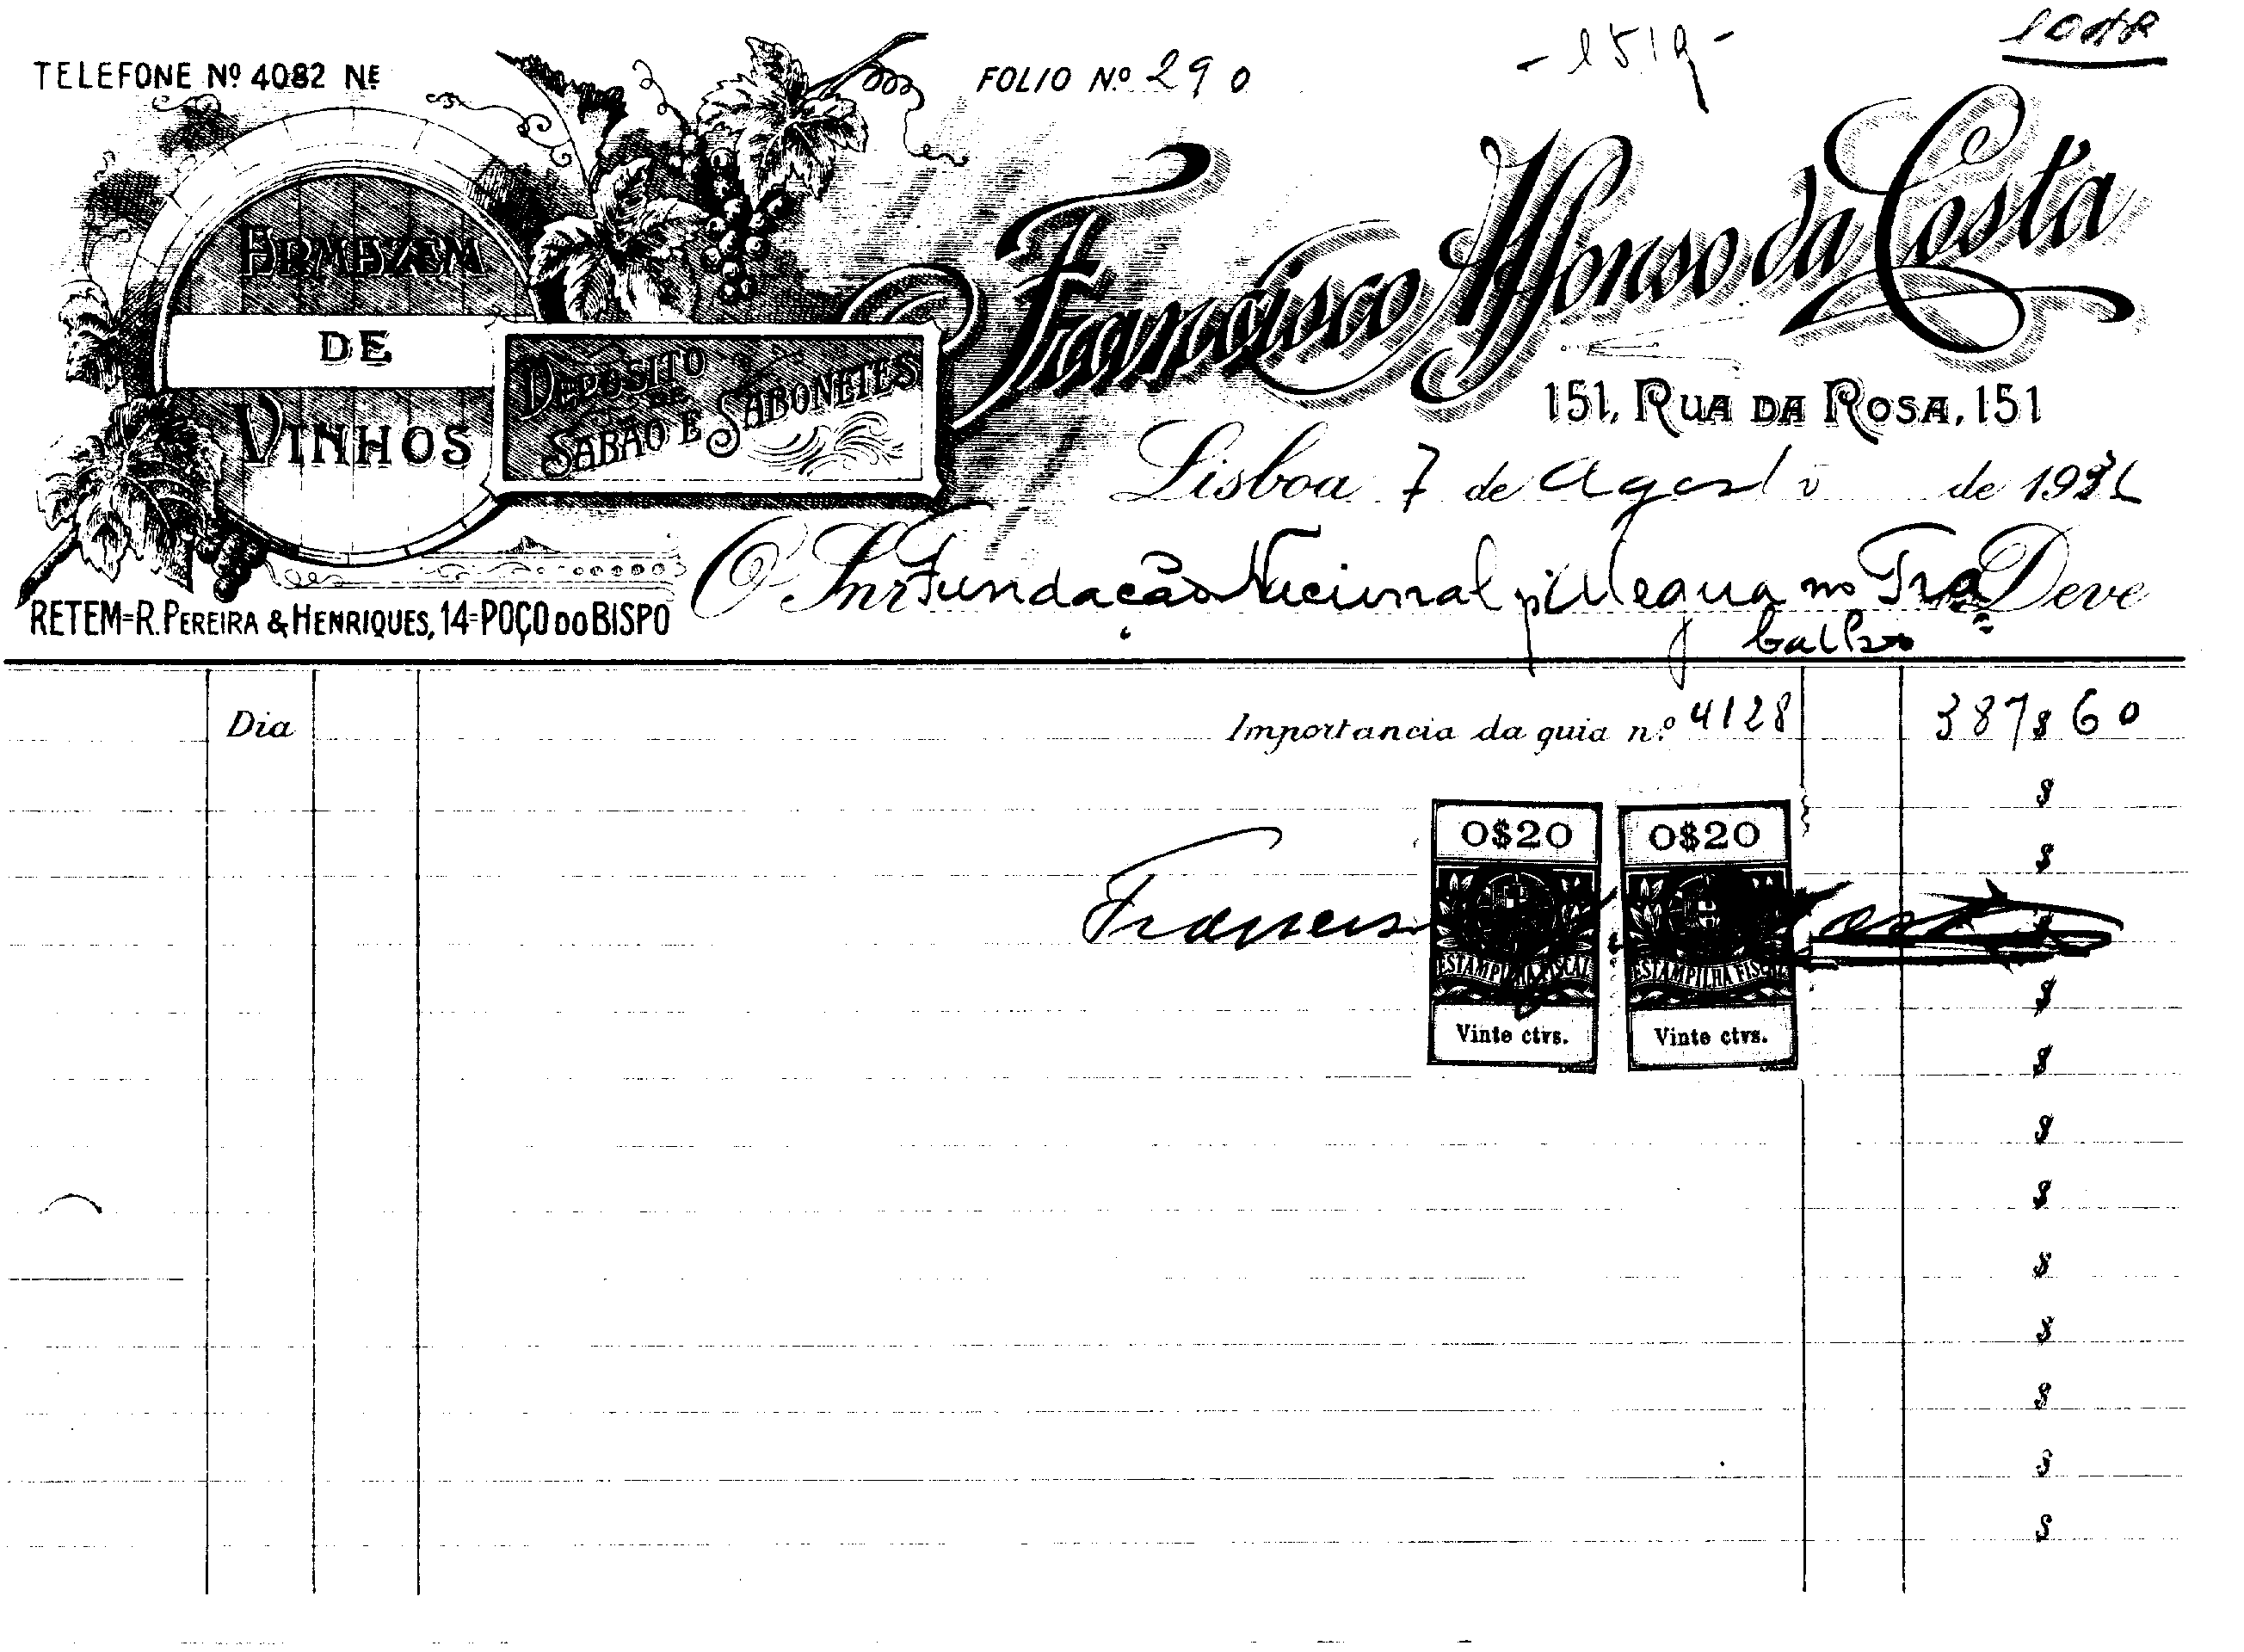 TELEFONE Nº 4082 NE
FOLIO Nº 290
- 1519 -
ARMAZEM
DE
VINHOS
DEPOSITO
DE
SABÃO E SABONETES
Francisco Affonso da Costa
151, RUA DA ROSA, 151
Lisboa 7 de Agosto de 193
O Snr Fundação Nacional p/ Alegria no Tra= Deve
balho
RETEM=R. PEREIRA & HENRIQUES, 14=POÇO DO BISPO
Dia Importancia da guia n.º 4128 387$60
$
$
O$20 O$20
Francis
$
ESTAMPILHA FISCAL ESTAMPILHA FISCAL
$
Vinte ctvs. Vinte ctvs.
$
$
$
$
$
$
$
$